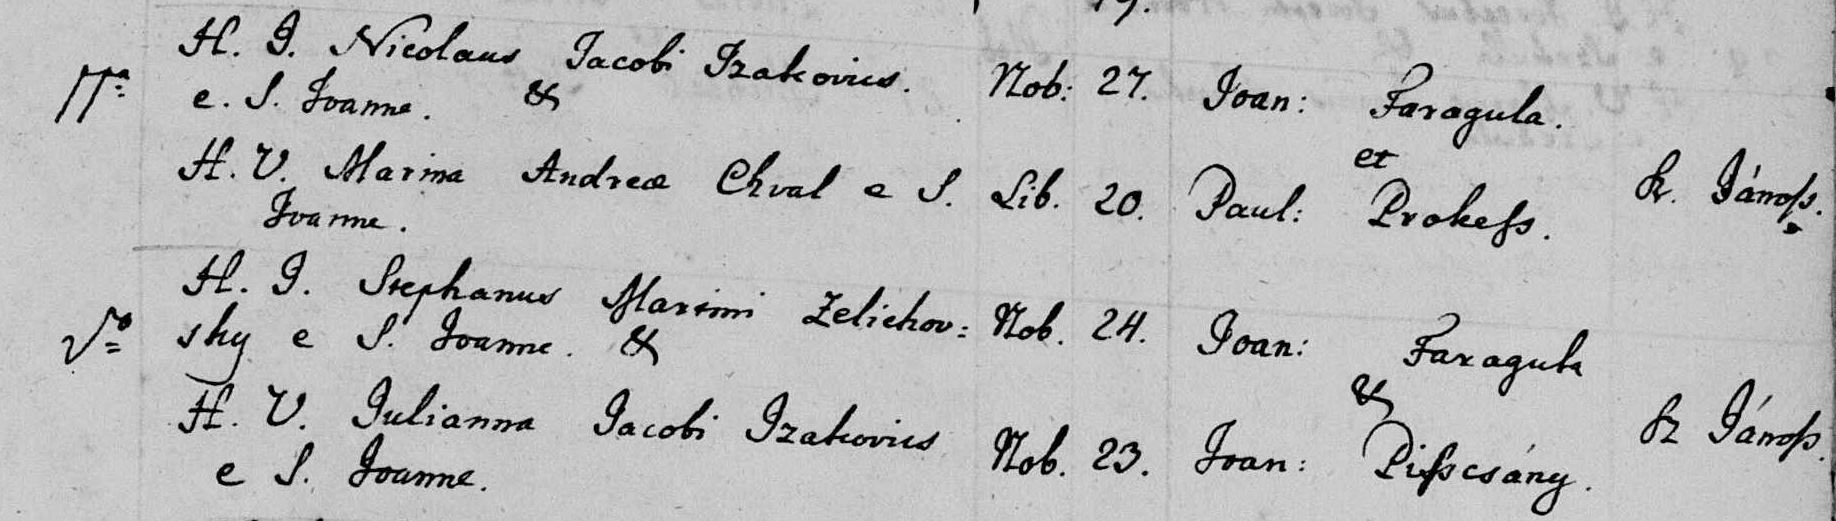 H. I. Nicolaus Jacobi Izakovics. Nob: 27. Joan: Faragula.
e. S. Joanne. &
et
H. V. Marina Andreæ Chval e S. Lib. 20. Paul: Prokess. Sz. Jánoss.
Joanne.
H. I. Stephanus Martini Zelichov= Nob. 24. Joan: Faragula
sky e S. Joanne. &
&
H. V. Julianna Jacobi Izakovics Nob. 23. Joan: Pisscsány. Sz Jánoss.
e S. Joanne.